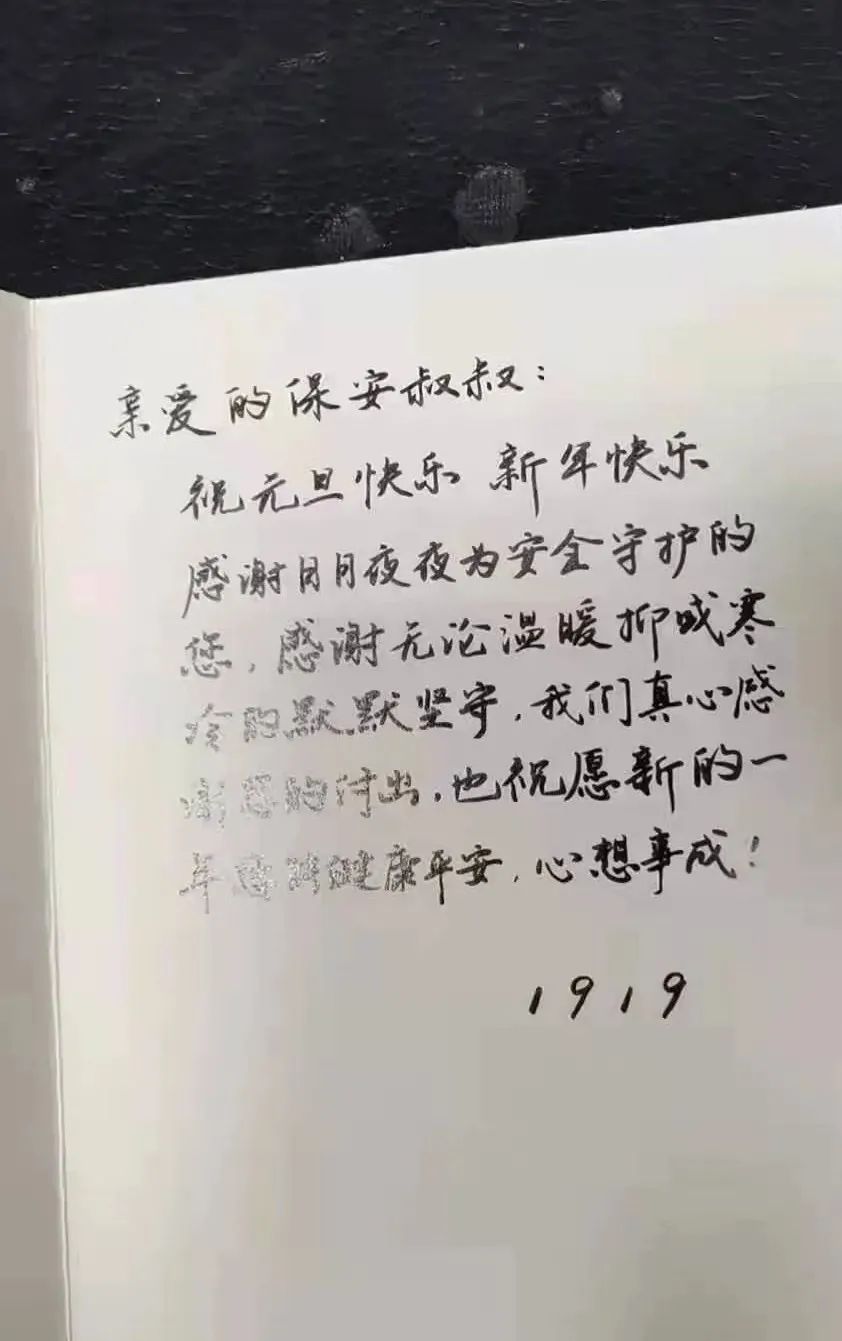 亲爱的保安叔叔：
祝元旦快乐 新年快乐
感谢日日夜夜为安全守护的
您，感谢无论温暖抑或寒
冷的默默坚守，我们真心感
谢您的付出，也祝愿新的一
年您能健康平安，心想事成！
1919